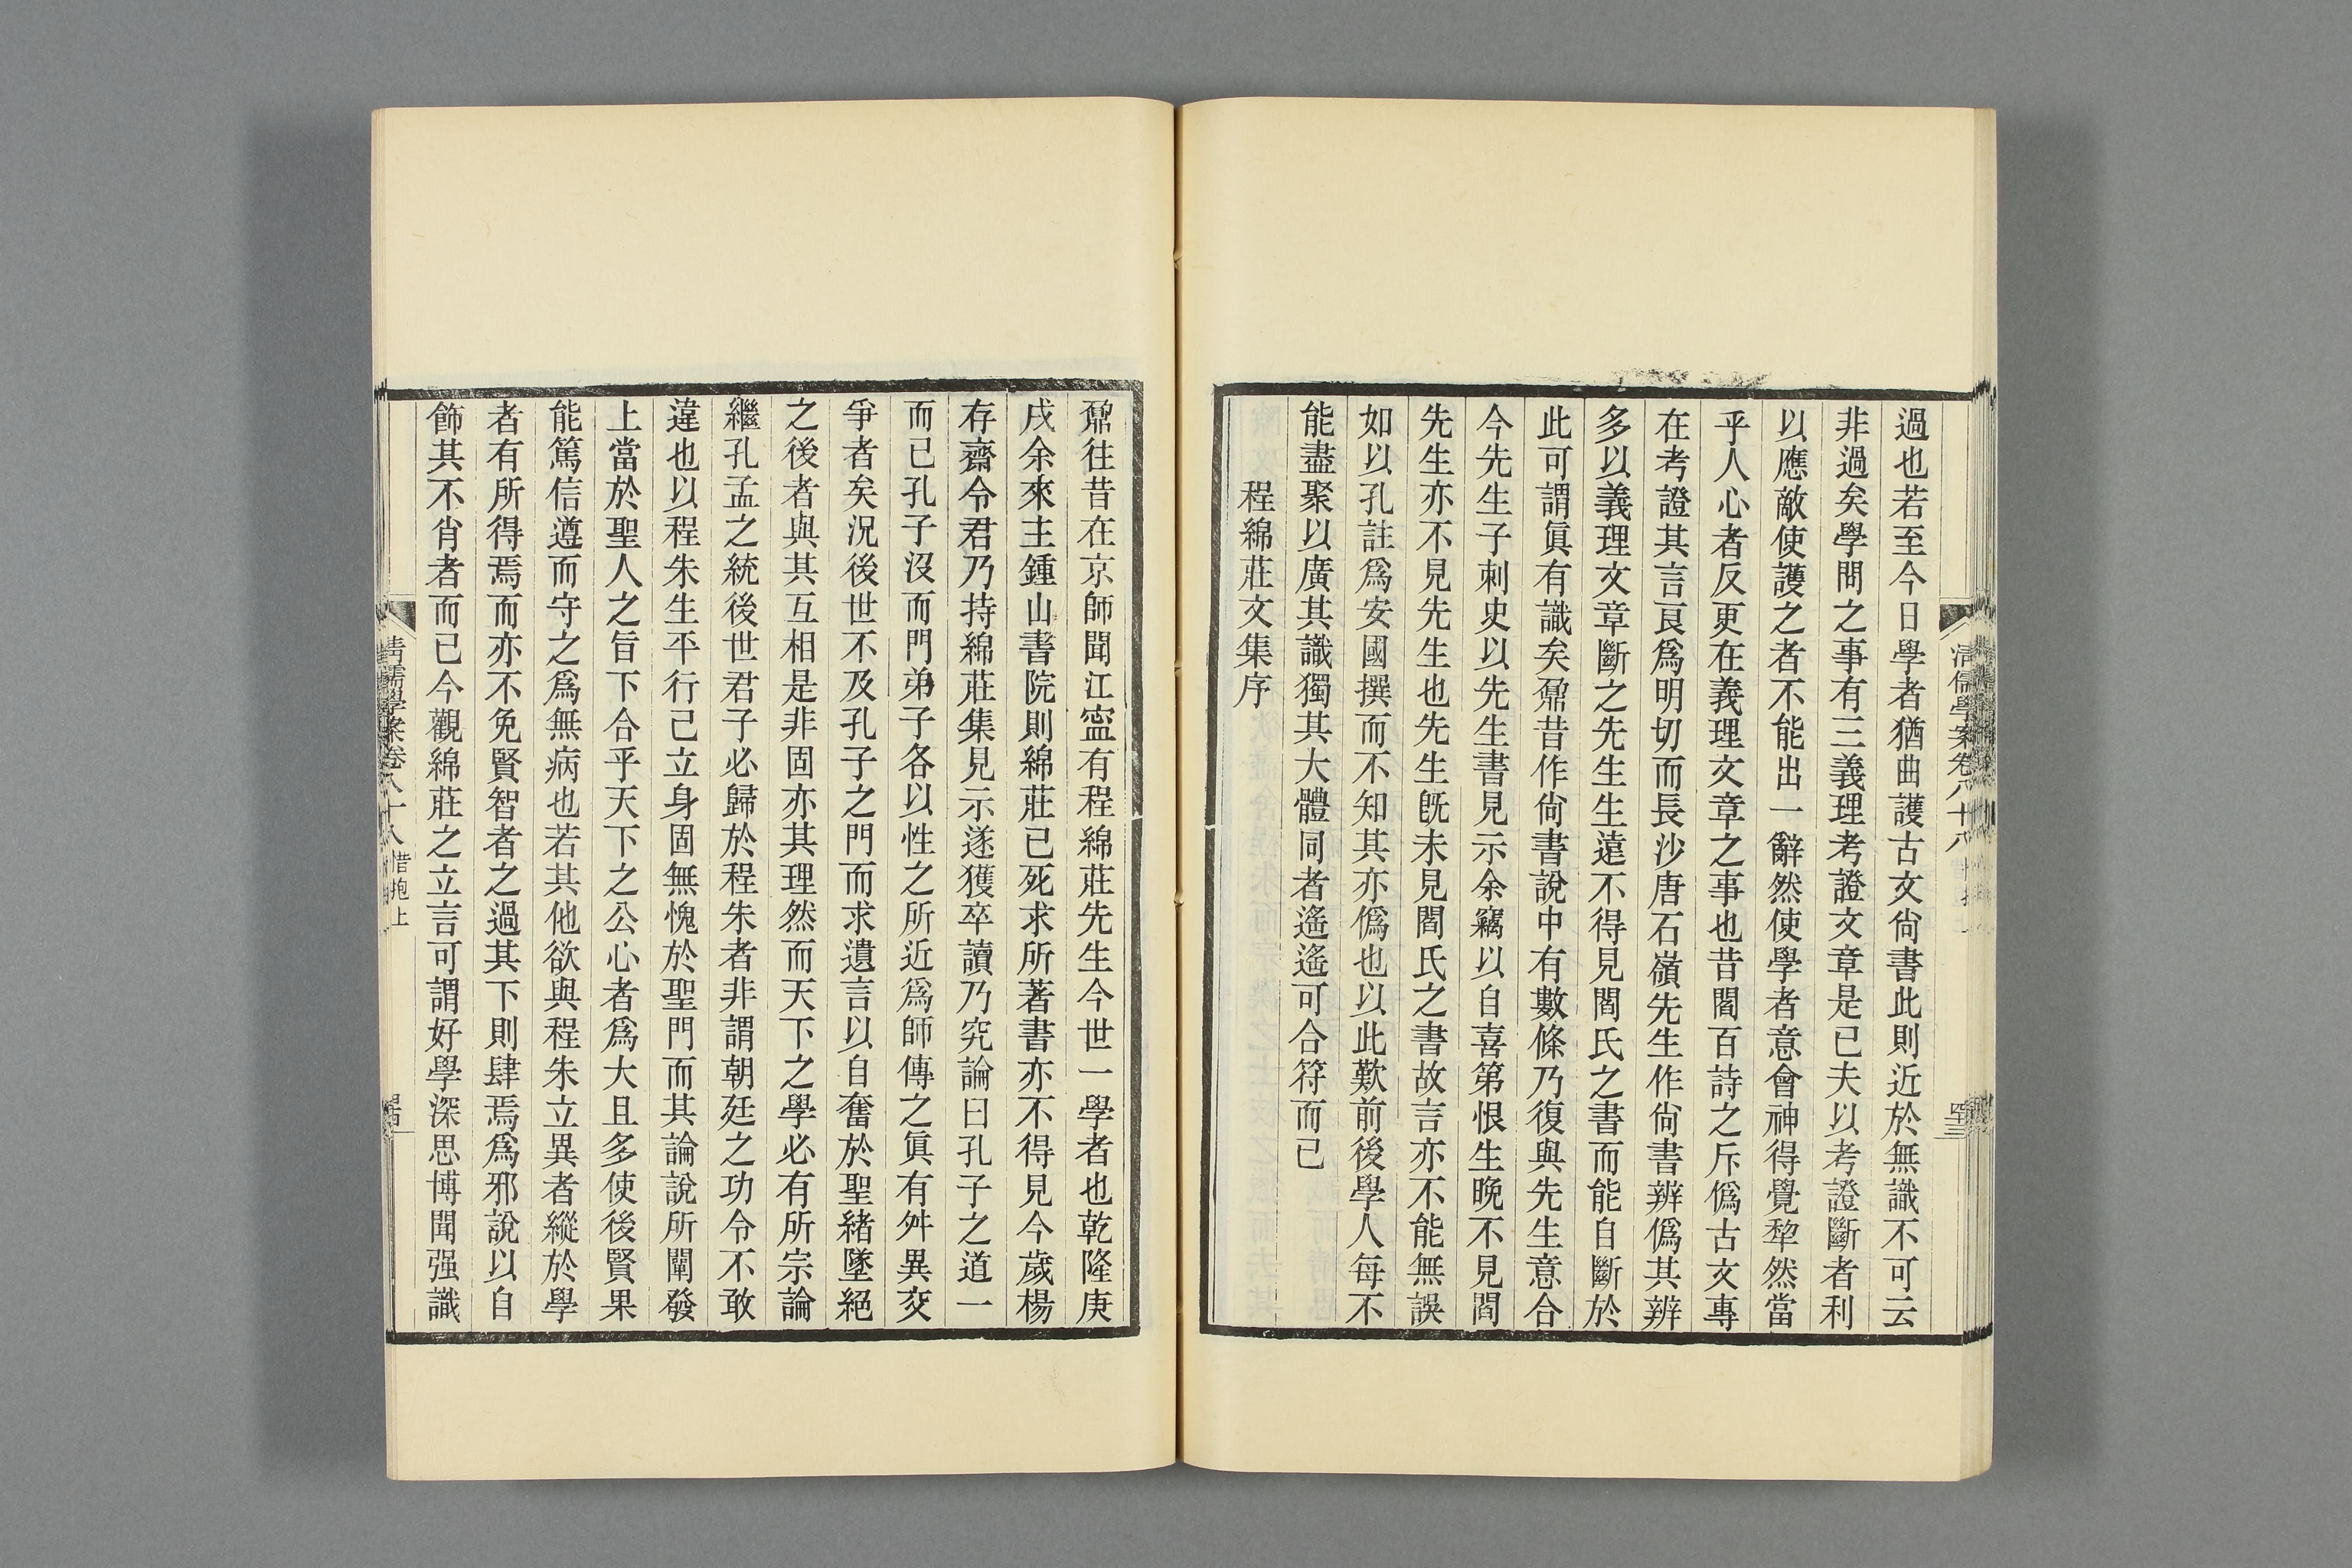 清儒學案卷八十八
過也若至今日學者猶曲護古文尙書此則近於無識不可云
非過矣學問之事有三義理考證文章是已夫以考證斷者利
以應敵使護之者不能出一辭然使學者意會神得覺犂然當
乎人心者反更在義理文章之事也昔閻百詩之斥僞古文專
在考證其言良爲明切而長沙唐石嶺先生作尙書辨僞其辨
多以義理文章斷之先生生遠不得見閻氏之書而能自斷於
此可謂眞有識矣鼐昔作尙書說中有數條乃復與先生意合
今先生子刺史以先生書見示余竊以自喜第恨生晚不見閻
先生亦不見先生也先生旣未見閻氏之書故言亦不能無誤
如以孔註爲安國撰而不知其亦僞也以此歎前後學人每不
能盡聚以廣其識獨其大體同者遙遙可合符而已
程綿莊文集序
鼐往昔在京師聞江寍有程綿莊先生今世一學者也乾隆庚
戌余來主鍾山書院則綿莊已死求所著書亦不得見今歲楊
存齋令君乃持綿莊集見示遂獲卒讀乃究論曰孔子之道一
而已孔子沒而門弟子各以性之所近爲師傳之眞有舛異交
爭者矣況後世不及孔子之門而求遺言以自奮於聖緒墜絕
之後者與其互相是非固亦其理然而天下之學必有所宗論
繼孔孟之統後世君子必歸於程朱者非謂朝廷之功令不敢
違也以程朱生平行己立身固無愧於聖門而其論說所闡發
上當於聖人之旨下合乎天下之公心者爲大且多使後賢果
能篤信遵而守之爲無病也若其他欲與程朱立異者縱於學
者有所得焉而亦不免賢智者之過其下則肆焉爲邪說以自
飾其不肖者而已今觀綿莊之立言可謂好學深思博聞强識
清儒學案卷八十八 惜抱上